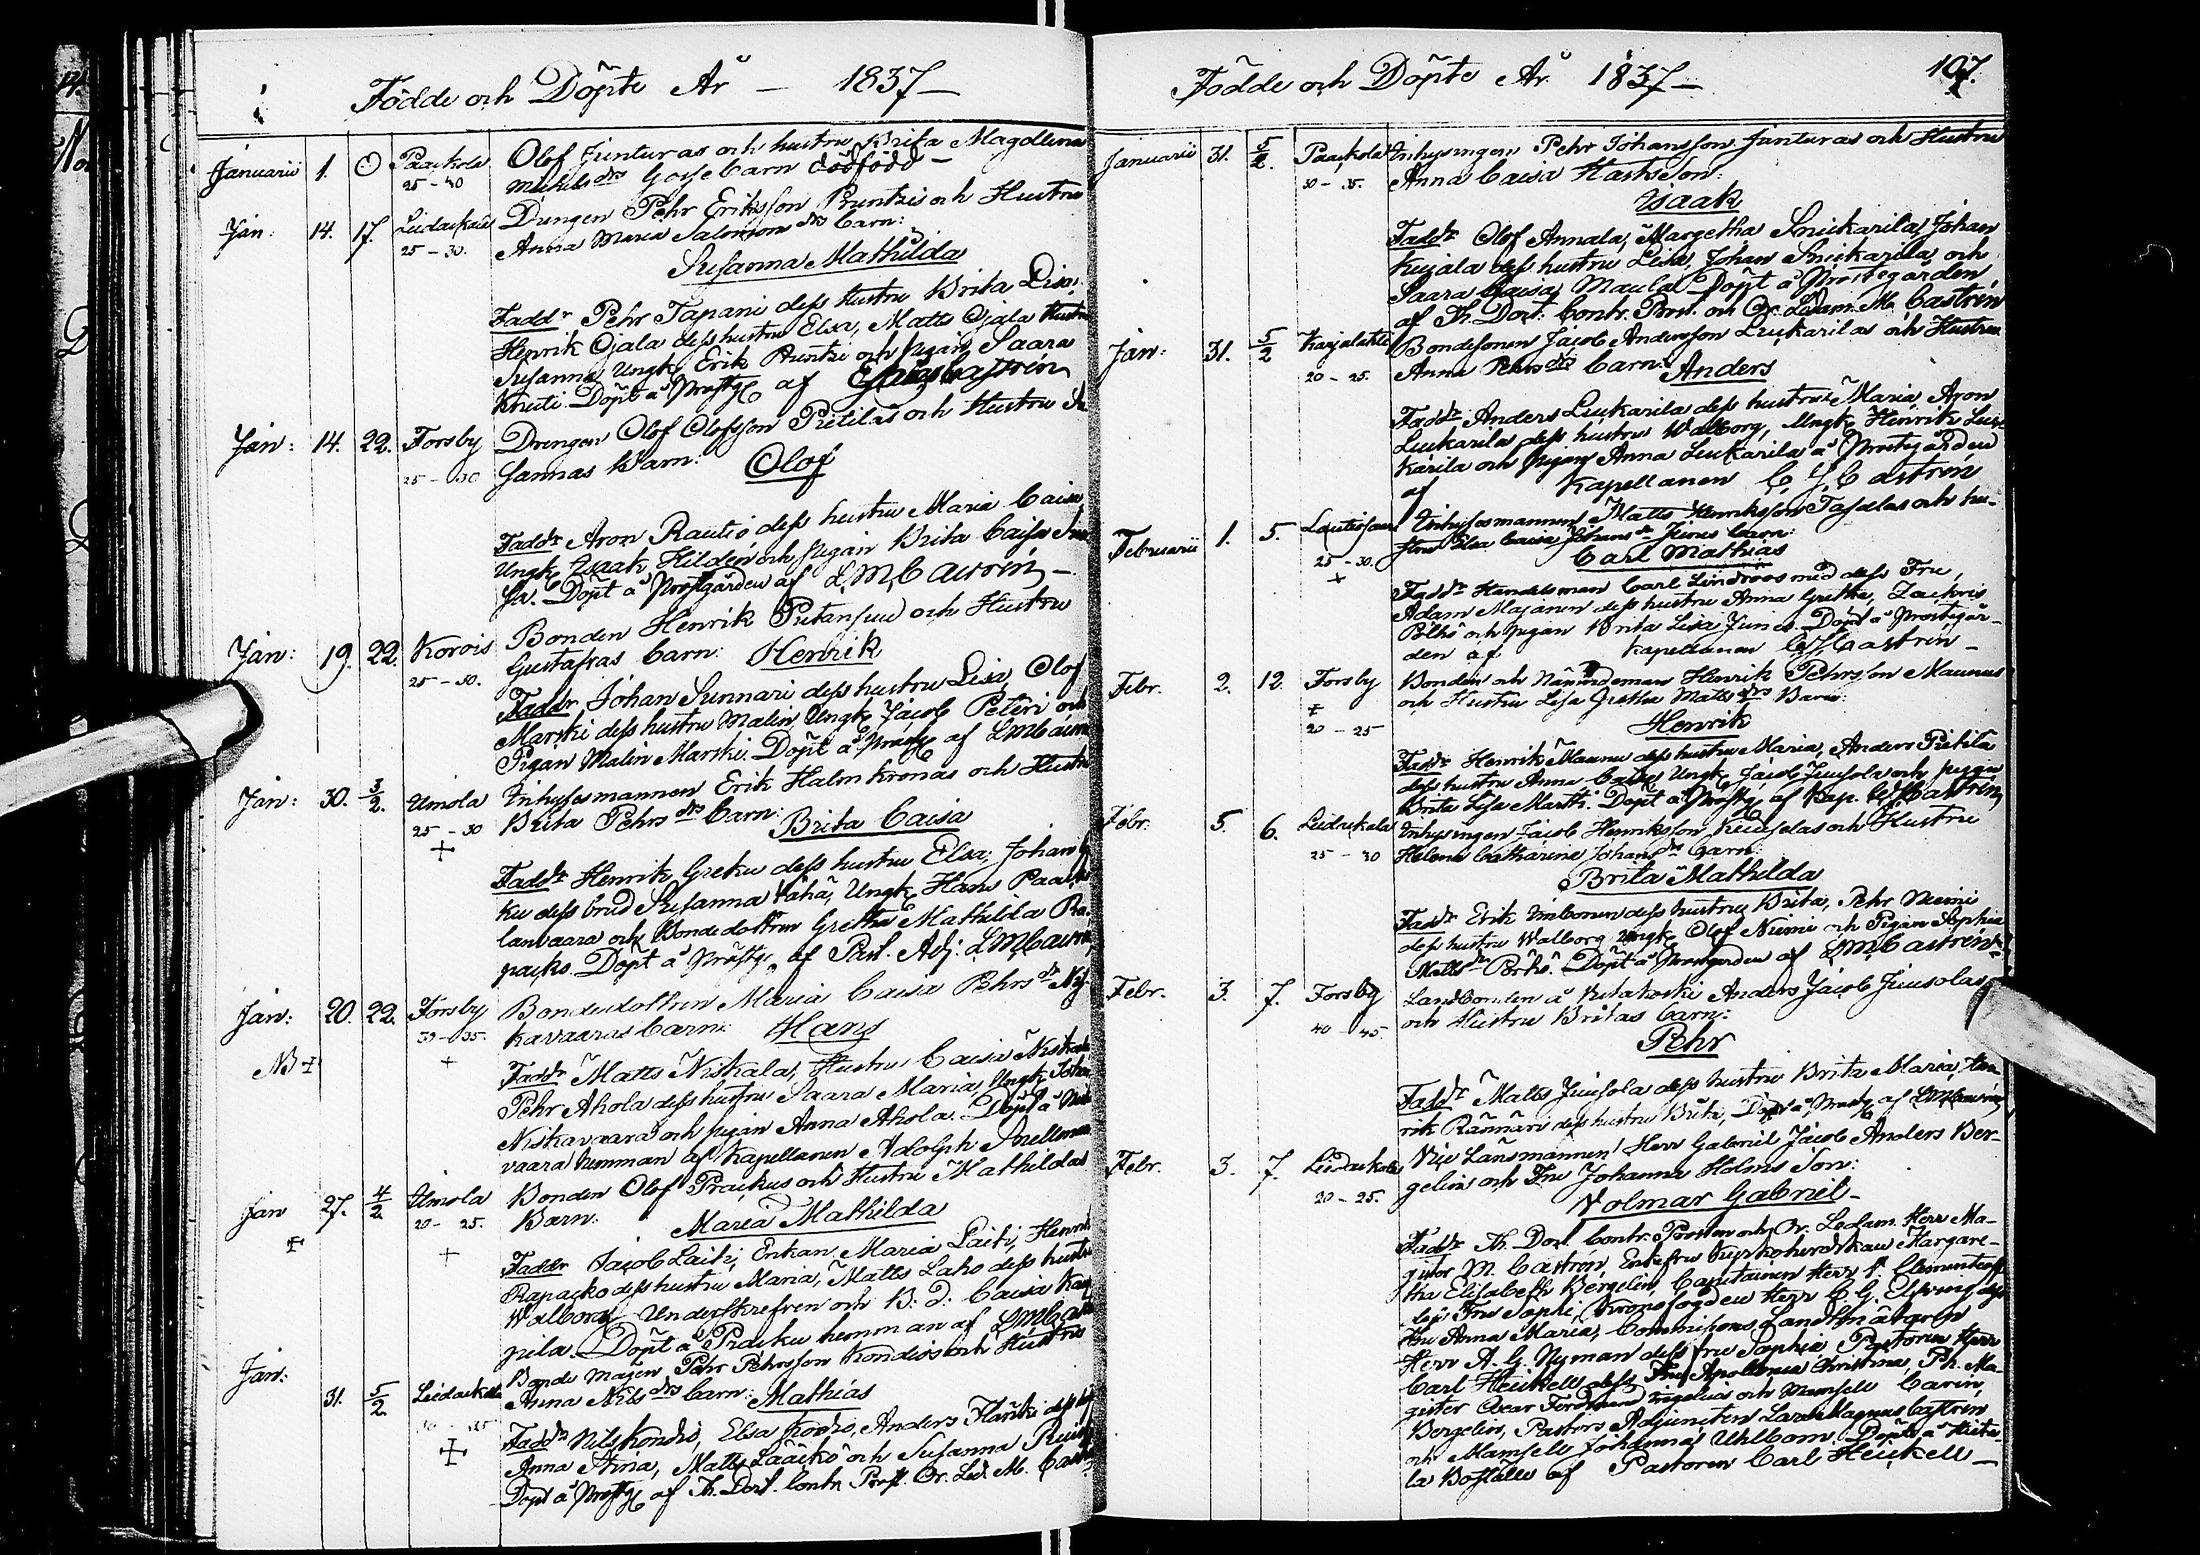 Födde och Döpte År — 1837 —
Januarii 1. Paackola Olof Junturas och hustru Brita Magdlena
25-30 Michelsdrs Gosse barn dödfödd —
Jan: 14. 17. Leidackala Drengen Pehr Eriksson Runtis och Hustru
25-30. Anna Maria Salomonsdrs barn:
Susanna Mathilda
Faddr Pehr Tapani dess hustru Brita Lisa,
Henrik Ojala dess hustru Elsa, Matts Ojala hustru
Susanna, Ungk. Erik Runtti och pigan Saara
Döpt å Prostg. af Castrén
Jan: 14. 22. Forsby Drengen Olof Olofsson Pietilas och Hustru
25-30 Sannas Barn: Olof
Faddr Aron Rautio dess hustru Maria Caisa
Ungk. Isaak Hildén och pigan Brita Caisa
Döpt å Prostgården af L M Castrén —
Jan: 19. 22. Korois Bonden Henrik och Hustru
25-30. Gustafvas barn: Henrik
Faddr Johan Sunnari dess hustru Lisa, Olof
Marski dess hustru Malin, Ungk. Jacob Peteri och
Pigan Malin Marski. Döpt å Prostg. af L M Castrén
Jan: 30. 3/2. Umola Inhysesmannen Erik Halmkronas och Hustru
25-30 Brita Pehrsdrs barn: Brita Caisa
+
Faddr Henrik Greku dess hustru Elsa, Johan
ku dess brud Susanna Vähä, Ungk. Hans
lanvaara och Bondedottren Gretha Mathilda Ra-
packo. Döpt å Prostg. af Past. Adj. L M Castrén
Jan: 20. 22. Forsby Bondedottren Maria Caisa Pehrsdr Nis-
NB + 30-35. kavaaras barn: Hans
+ Faddr Matts Niskala, Hustru Caisa Niskala
Pehr Ahola dess hustru Saara Maria, Ungk. Johan
Niskavaara och pigan Anna Ahola. Döpt å Niska
vaara hemman af Kapellanen Adolph Snellman
Jan 27. 4/2 Umola Bonden Olof Prackus och Hustru Mathildas
+ 20-25. Barn: Maria Mathilda
+ Faddr Jacob Laiti, Enkan Maria Laiti, Henrik
Rapacko dess hustru Maria, Matts Laho dess hustru
Walborg, Underskrefven och B: D: Caisa
pila. Döpt å Pracku hemman af L M Cast
Jan: Bonde mågen Pehr Pehrsson Kondios och Hustrus
31. 5/2 Leidackala Anna Nilsdrs barn: Mathias
+ Faddr Nils Kondio, Elsa Kondio, Anders
Anna Stina, Matts Lääckö och Susanna
Döpt å Prostg. af Th. Doct. Contr. Prost. Or. Led. M. Cast
Födde och Döpte År 1837 — 107.
Januarii 31. 5/2. Paackola Inhysingen Pehr Johansson Junturas och Hustru
30-35. Anna Caisa Son:
Isaak
Faddr Olof Annala, Margetha Snickarila, Johan
Kujala dess hustru Lisa, Johan Snickarila och
Saara Caisa Maula. Döpt å Prostegården
af Th. Doct. Contr. Prost. och Or. Ledam. M. Castrén
Jan: 31. 5/2 Karjalahti Bondesonen Jacob Andersson Leukarilas och Hustru
20-25. Anna Pehrsdrs barn: Anders
Faddr Anders Leukarila dess hustru Maria, Aron
Leukarila dess hustru Walborg, Ungk. Henrik Leu-
karila och pigan Anna Leukarila å Prostegården
af Kapellanen C J Castrén
Februarii 1. 5. Inhysesmannens Matts Henriksson och hu-
25-30. strus Elsa Caisa Johansdr Junes barn:
+ Carl Mathias
Faddr Handelsman Carl Lindroos med dess Fru,
Adam Majanen dess hustru Anna Gretha, Zachris
Pölhö och pigan Brita Lisa Junes. Döpt å Prostegår-
den af Kapellanen C J Castrén —
Febr. 2. 12. Forsby Bonden och Nämndeman Henrik Pehrsson Maunus
+ och Hustru Lisa Gretha Mattsdrs Barn:
20-25 Henrik
Faddr Henrik Maunu dess hustru Maria, Anders Pietilä
dess hustru Anna Caisa, Ungk. Jacob Juusola och pigan
Brita Lisa Martti. Döpt å Prostg. af Kap. C J Castrén
Febr. 5. 6. Leidackala Inhysingen Jacob Henriksson och Hustru
25-30 Helena Catharina Johansdrs barn:
Brita Mathilda
Faddr Erik dess hustru Brita, Pehr Niemi
dess hustru Walborg, Ungk. Olof Niemi och Pigan Sophia
Mattsdr Pörhö. Döpt å Prostgården af L M Castrén
Febr. 3. 7. Forsby Landbonden å Anders Jacob Juusolas
40-45. och Hustru Britas barn:
Pehr
Faddr Matts Juusola dess hustru Brita Maria, Hen-
rik Rännäri dess hustru Brita, Döpt å Prostg. af L M Castrén
Febr. 3. 7. Leidackala Vice Länsmannen Herr Gabriel Jacob Anders Ber-
20-25. gelin och Fru Johanna Holms Son:
Volmar Gabriel —
Faddr Th. Doct. Contr. Prosten och Or. Ledam. Herr Ma-
gister M. Castrén, Enkefru Kyrkoherdskan Margare-
tha Elisabeth Bergelin, Capitainen Herr Clementeoff
dess Fru Sophie, Kronofogden Herr C. G. Elfving dess
Fru Anna Maria, Commissions Landtmätaren
Herr A. G. Nyman dess fru Sophia, Pastoren Herr
Carl Heickell dess Fru Apollonia Christina, Ph. Ma-
gister Oscar Ferdinand och Mamsell Carin
Bergelin, Pastors Adjuncten Lars Magnus Castrén
och Mamsell Johanna Uhlbom. Döpt å
la Boställe af Pastoren Carl Heickell —